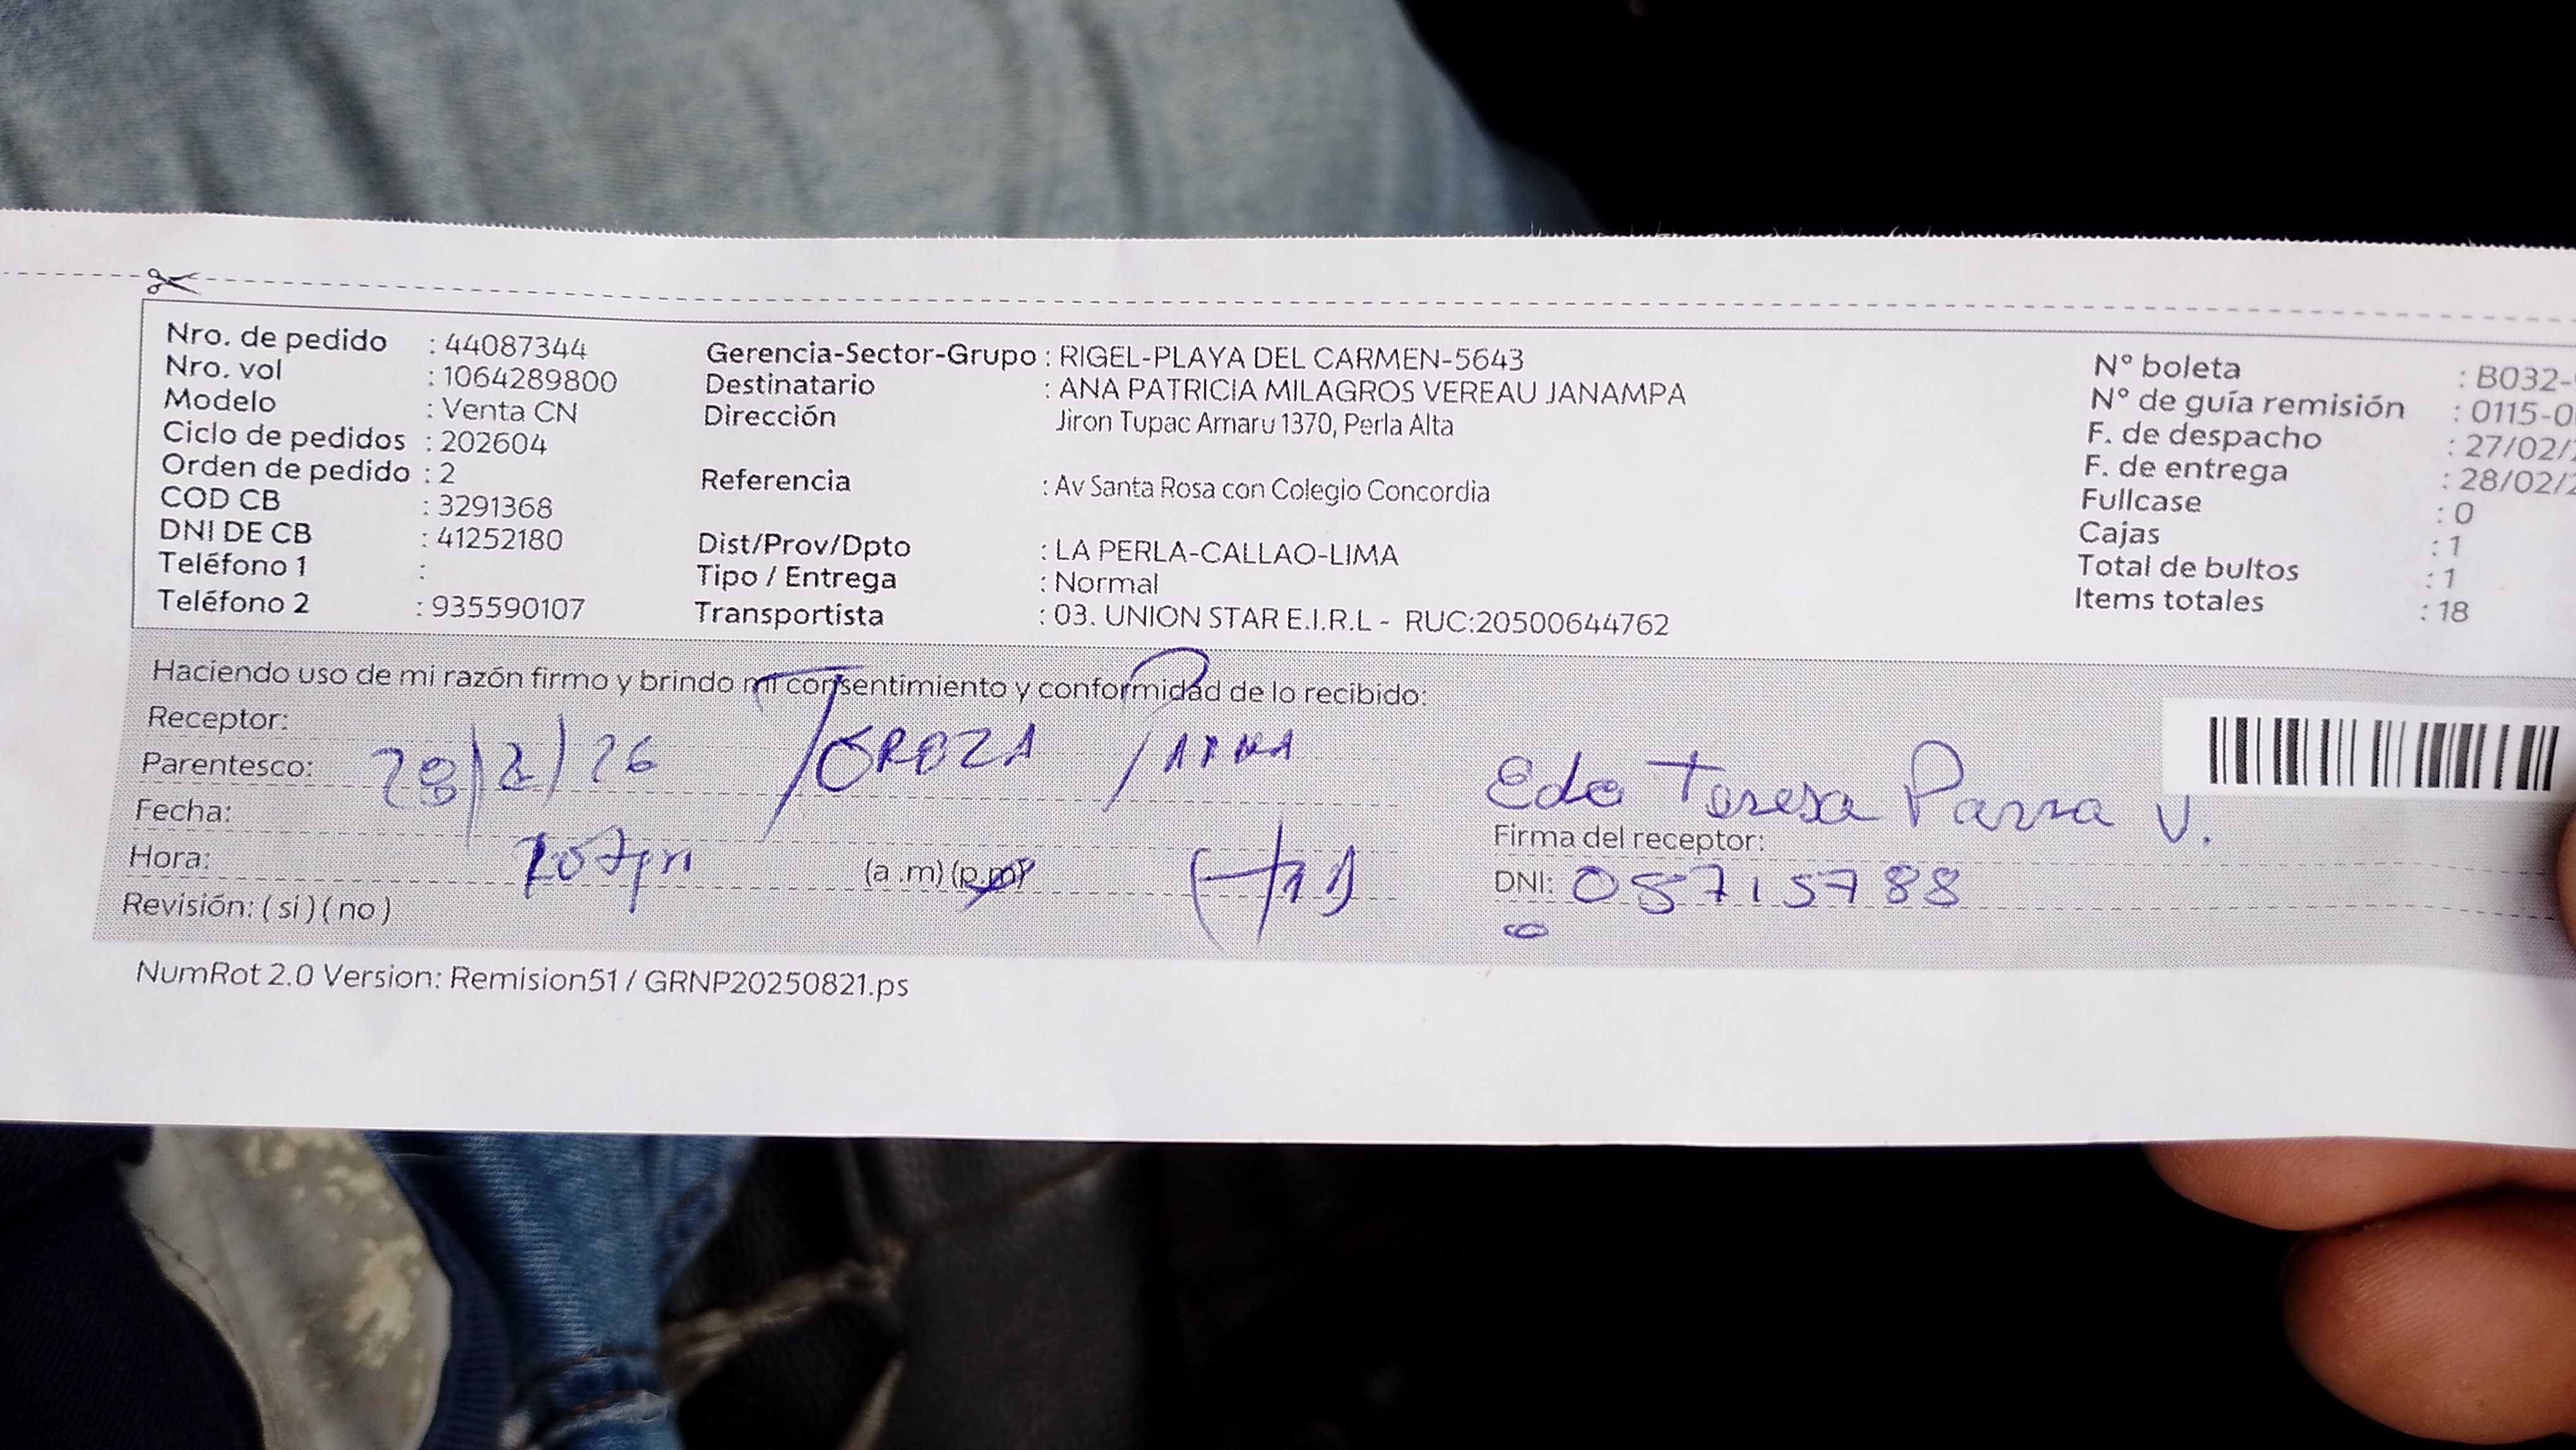 Nro. de pedido : 44087344
Nro. vol : 1064289800
Modelo : Venta CN
Ciclo de pedidos : 202604
Orden de pedido : 2
COD CB : 3291368
DNI DE CB : 41252180
Teléfono 1 :
Teléfono 2 : 935590107
Gerencia-Sector-Grupo : RIGEL-PLAYA DEL CARMEN-5643
Destinatario : ANA PATRICIA MILAGROS VEREAU JANAMPA
Dirección Jiron Tupac Amaru 1370, Perla Alta
Referencia : Av Santa Rosa con Colegio Concordia
Dist/Prov/Dpto : LA PERLA-CALLAO-LIMA
Tipo / Entrega : Normal
Transportista : 03. UNION STAR E.I.R.L - RUC:20500644762
N° boleta : B032-
N° de guía remisión : 0115-0
F. de despacho : 27/02/
F. de entrega : 28/02/2
Fullcase : 0
Cajas : 1
Total de bultos : 1
Items totales : 18
Haciendo uso de mi razón firmo y brindo mi consentimiento y conformidad de lo recibido:
Receptor:
Parentesco: 28/2/26
Fecha:
Hora: (a .m) (p.m)
Revisión: ( si ) ( no )
Teresa Parra V.
Firma del receptor:
DNI: 08715788
NumRot 2.0 Version: Remision51 / GRNP20250821.ps